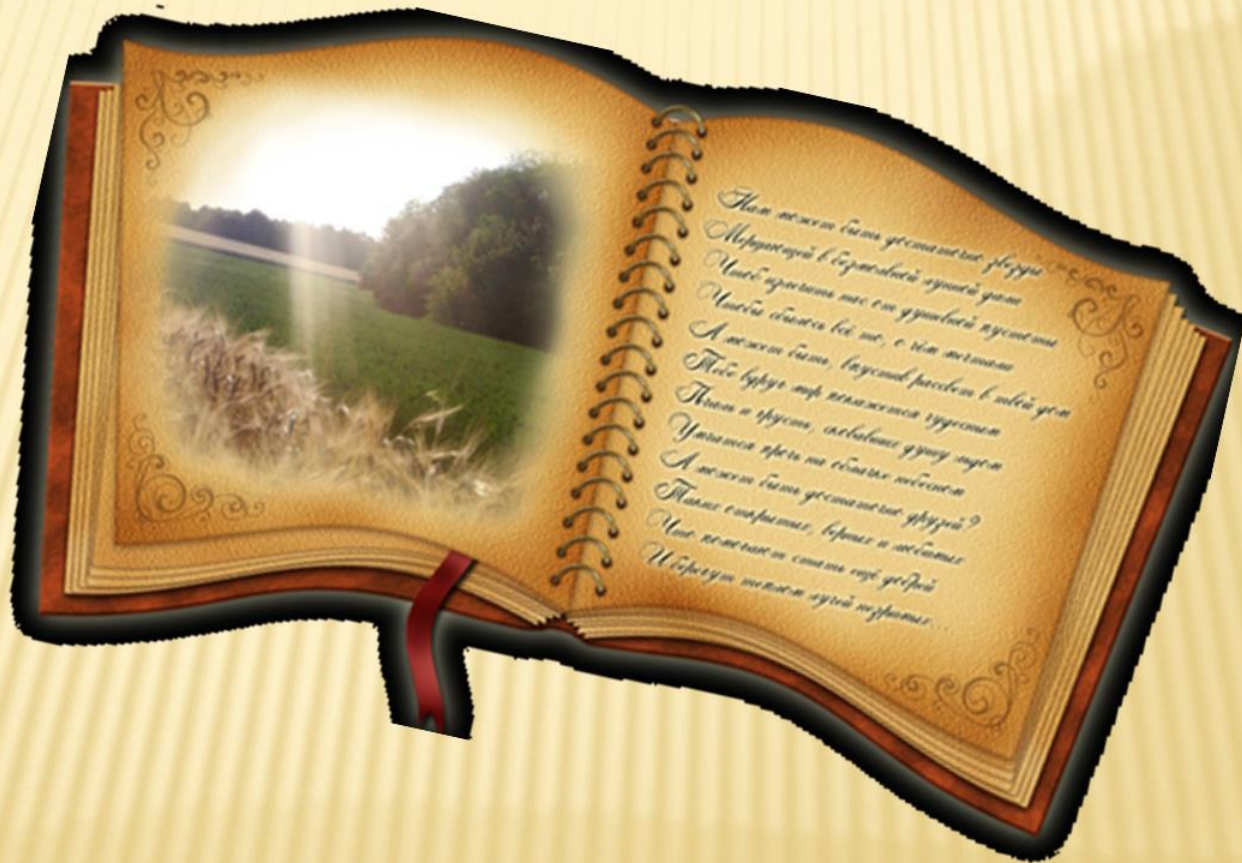 Нам может быть достаточно звезды
Мерцающей в безмолвной лунной дали
Чтоб излечить нас от душевной пустоты
Чтобы сбылось всё то, о чём мечтали
А может быть, впустив рассвет в твой дом
Тебе вдруг мир покажется чудесным
Печаль и грусть, сковавшие душу льдом
Умчатся прочь на облаке небесном
А может быть достаточно друзей?
Таких открытых, верных и любимых
Что помогают стать ещё добрей
И берегут теплом лучей незримых...